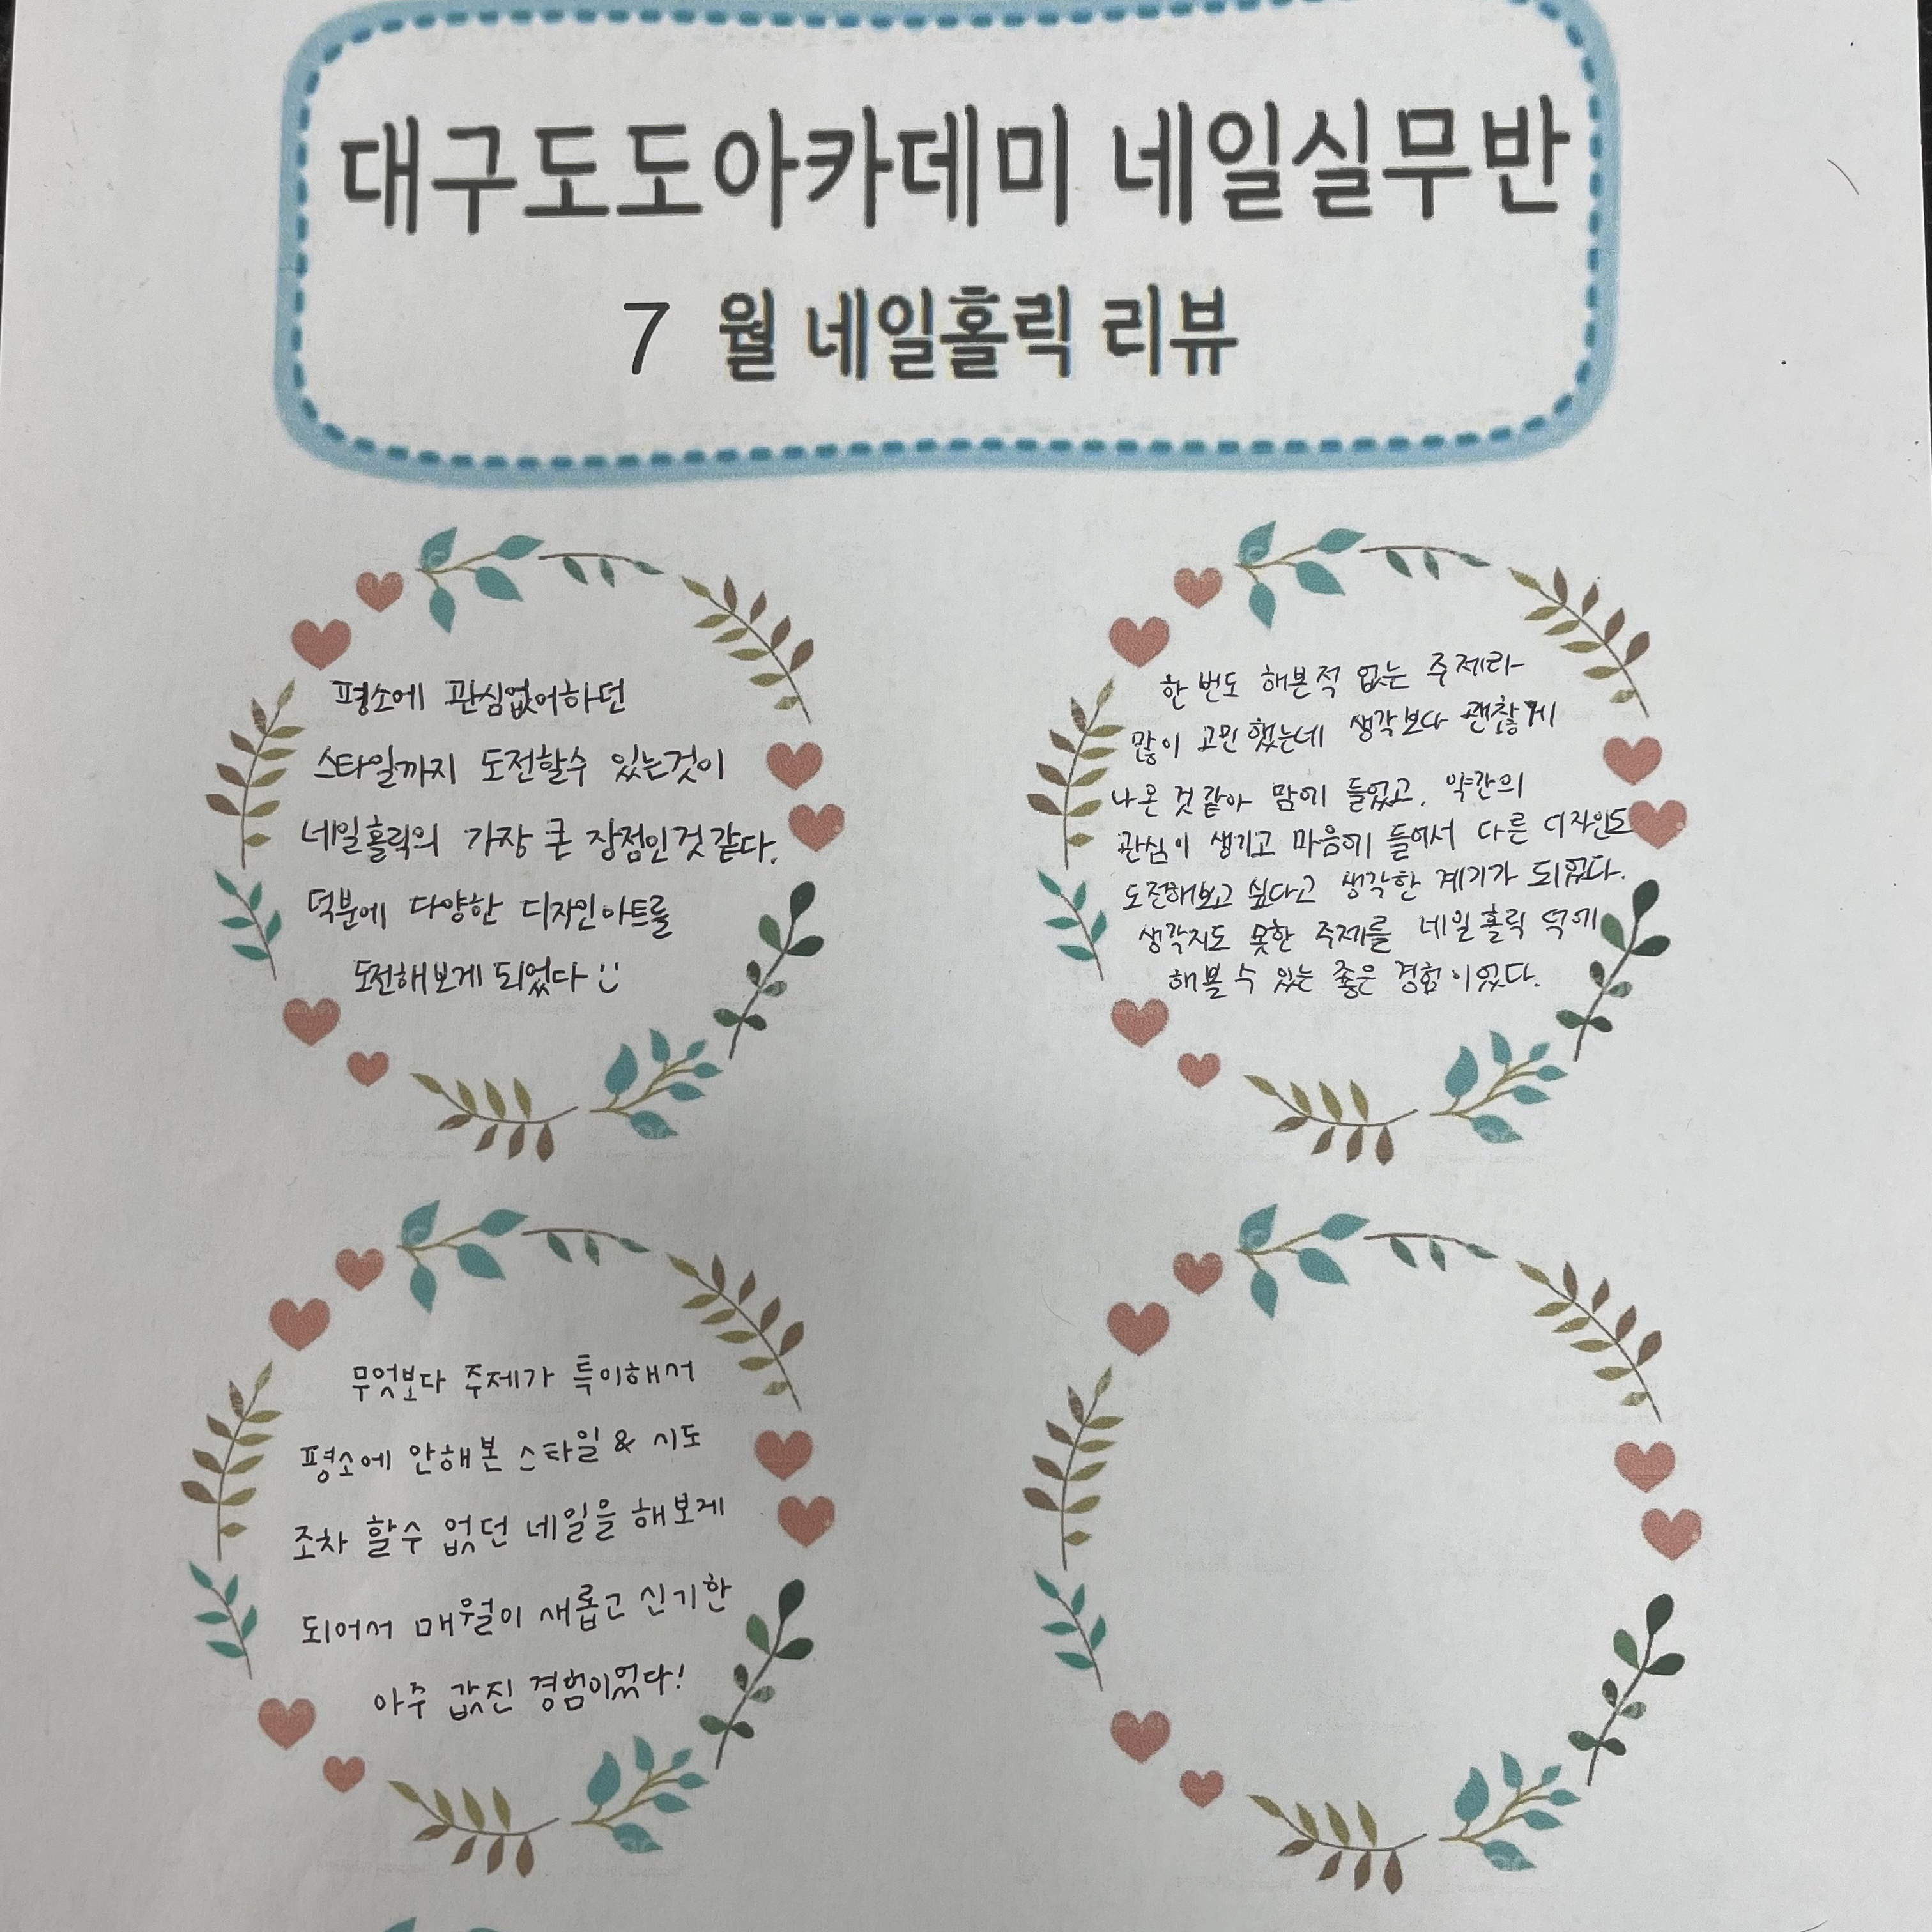 대구도도아카데미 네일실무반
7 월 네일홀릭 리뷰
평소에 관심없어하던
스타일까지 도전할수 있는것이
네일홀릭의 가장 큰 장점인것같다.
덕분에 다양한 디자인아트를
도전해보게 되었다 :)
한 번도 해본적 없는 주제라
많이 고민했는데 생각보다 괜찮게
나온 것 같아 맘에 들었고, 약간의
관심이 생기고 마음에 들어서 다른 디자인도
도전해보고 싶다고 생각한 계기가 되었다.
생각지도 못한 주제를 네일홀릭 덕에
해볼 수 있는 좋은 경험이었다.
무엇보다 주제가 특이해서
평소에 안해본 스타일 & 시도
조차 할수 없던 네일을 해보게
되어서 매월이 새롭고 신기한
아주 값진 경험이었다!